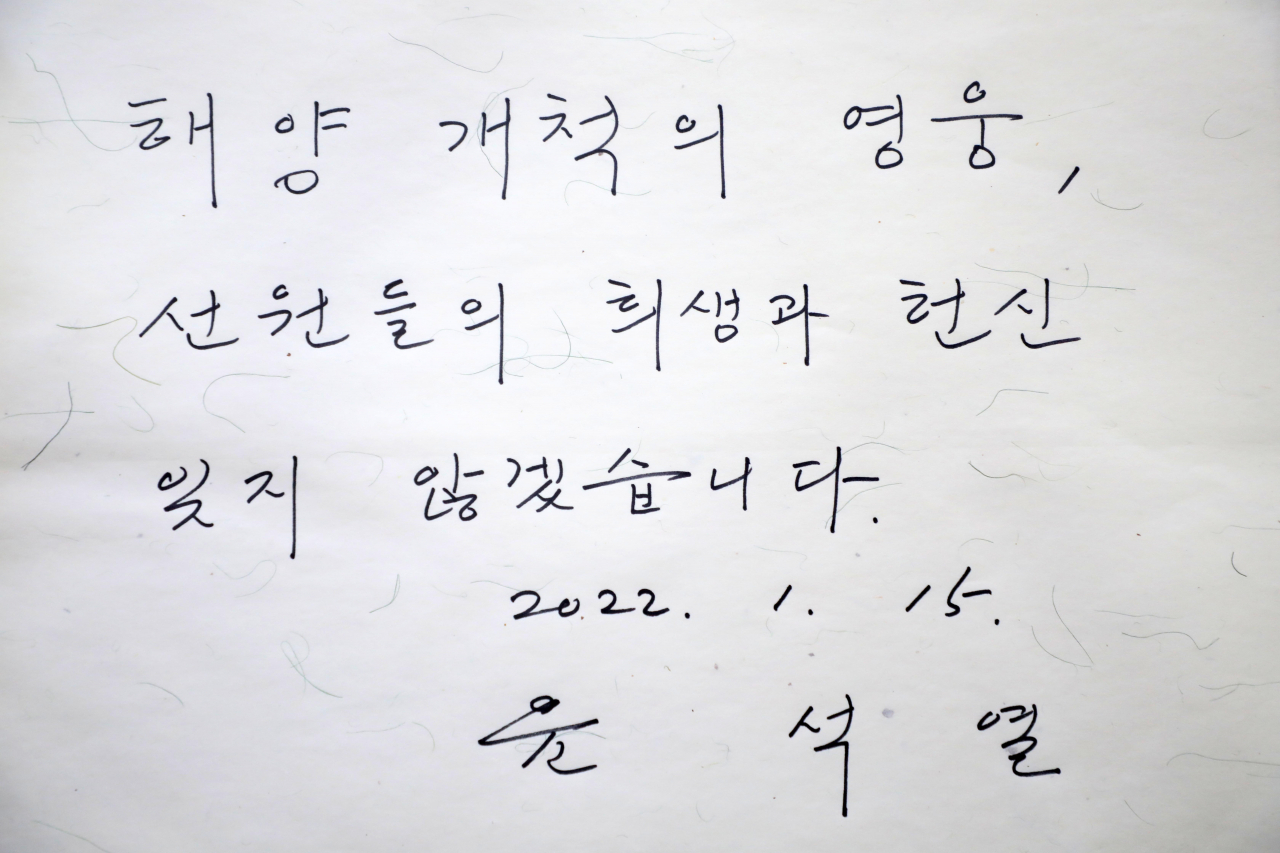 해양 개척의 영웅,
선원들의 희생과 헌신
잊지 않겠습니다.
2022. 1. 15.
윤 석 열